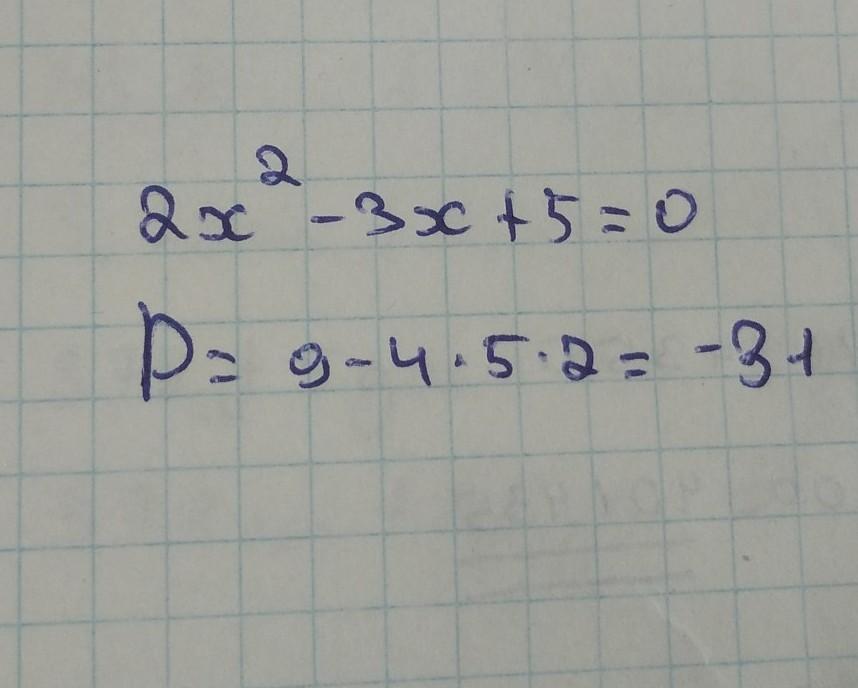 2x² - 3x + 5 = 0
D = 9 - 4 · 5 · 2 = -31